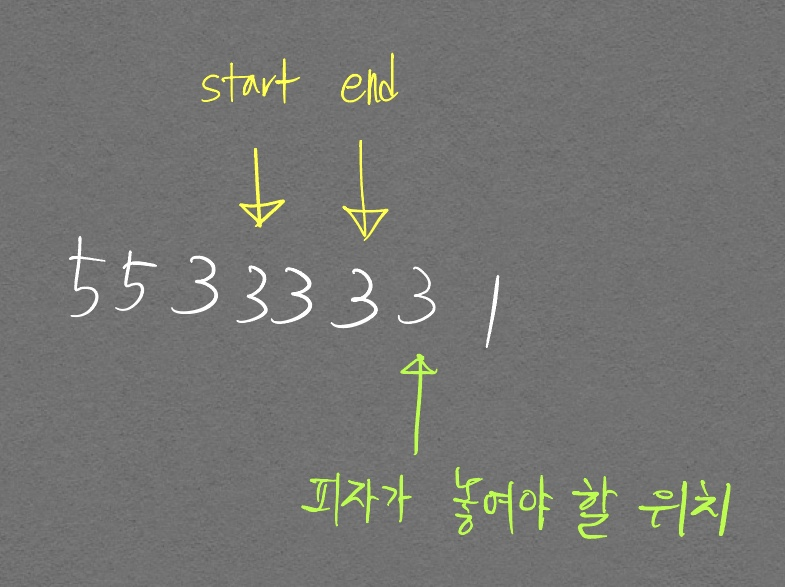 start end
5 5 3 3 3 3 3 1
피자가 놓여야 할 위치